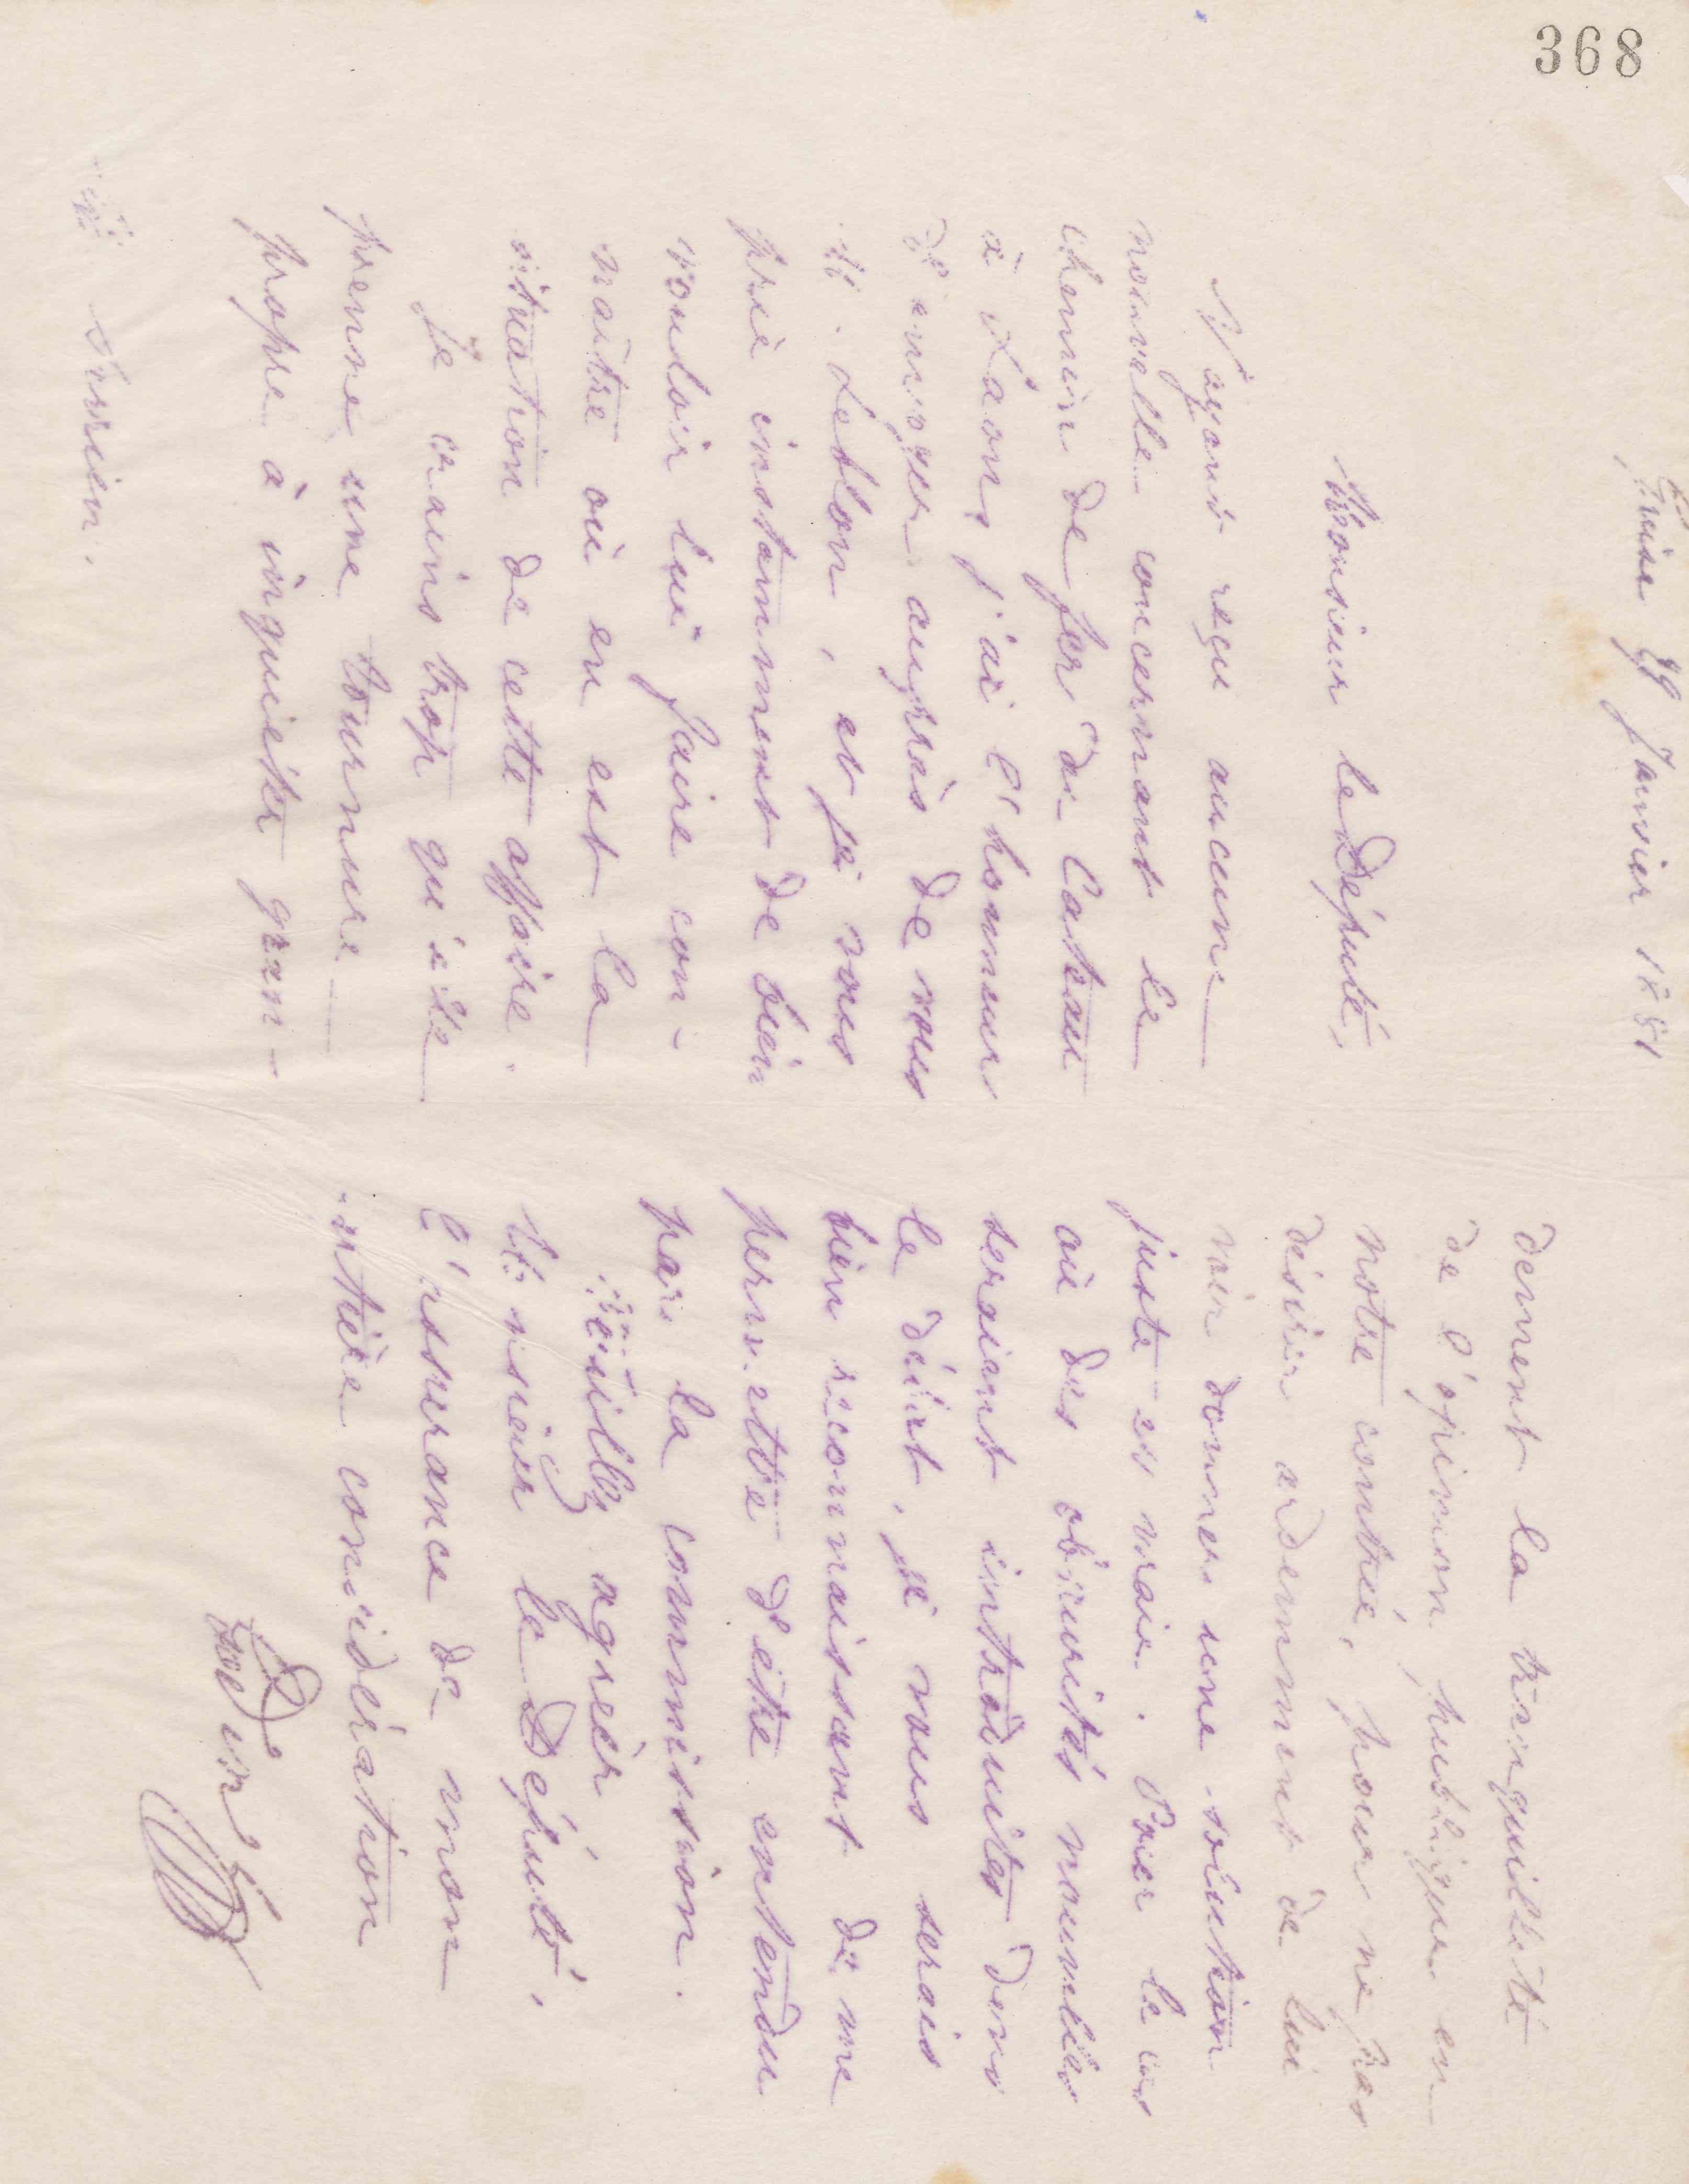 368
Guise 29 Janvier 1881
Monsieur le Député,
N'ayant reçu aucune
nouvelle concernant le
chemin de fer du Cateau
à Laon, j'ai l'honneur
d'envoyer auprès de vous
M. Leblon, et je vous
prie instamment de bien
vouloir lui faire con-
naître où en est la
situation de cette affaire.
Je crains trop qu'elle
prenne une tournure
propre à inquiéter gran-
dement la tranquillité
de l'opinion publique en
notre contrée, pour ne pas
désirer ardemment de lui
voir donner une solution
juste et vraie. Pour le cas
où des obscurités nouvelles
seraient introduites dans
le débat, je vous serais
bien reconnaissant de me
permettre d'être entendu
par la commission.
Veuillez agréer,
Monsieur le Député,
l'assurance de mon
entière considération
Godin